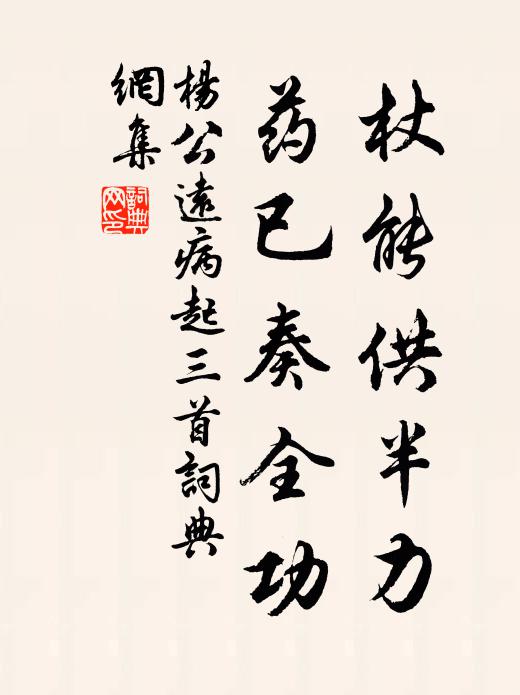 杖能供半力
药已奏全功
楊公遠病起三首詞典
網集
詞典
网印